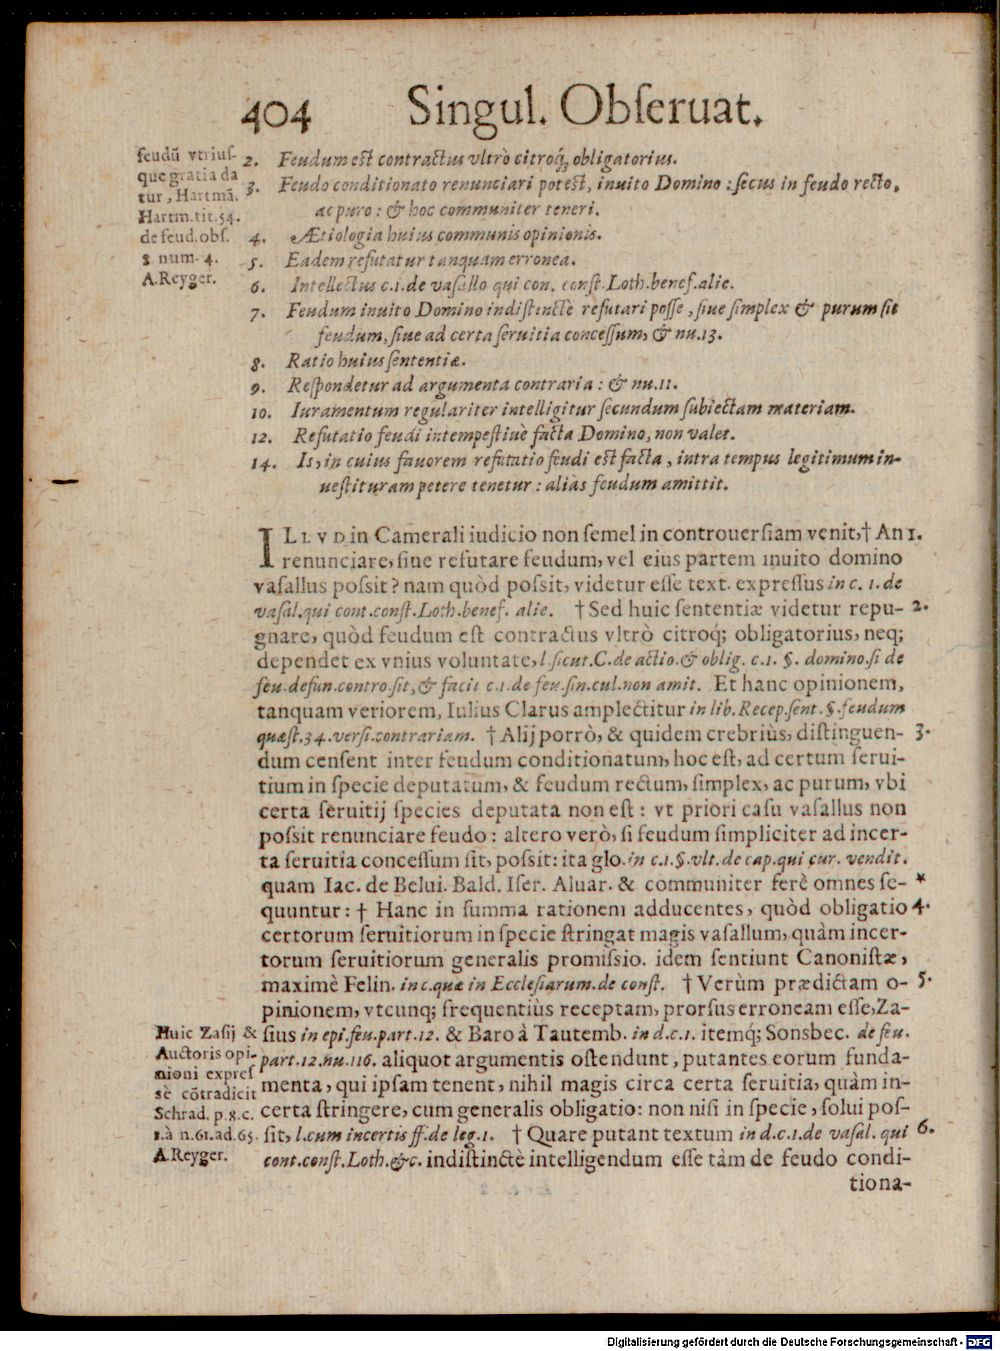 404 Singul. Obſeruat.
feudū vtriuſ-
que gratia da
tur, Hartmā.
Hartm.tit.54.
de feud.obſ.
3. num. 4.
A.Reyger.
2. Feudum est contractus vltrò citroq́; obligatorius.
3. Feudo conditionato renunciari potest, inuito Domino : ſecus in feudo recto,
ac puro : & hoc communiter teneri.
4. Ætiologia huius communis opinionis.
5. Eadem refutatur tanquam erronea.
6. Intellectus c.1.de vaſallo qui con. conſt.Loth.benef.alie.
7. Feudum inuito Domino indiſtinctè refutari poſſe, ſiue ſimplex & purum ſit
feudum, ſiue ad certa ſeruitia conceſſum, & nu.13.
8. Ratio huius ſententiæ.
9. Reſpondetur ad argumenta contraria : & nu.11.
10. Iuramentum regulariter intelligitur ſecundum ſubiectam materiam.
12. Refutatio feudi intempeſtiuè facta Domino, non valet.
14. Is, in cuius fauorem refutatio feudi est facta, intra tempus legitimum in-
ueſtituram petere tenetur : aliàs feudum amittit.
ILLVD in Camerali iudicio non ſemel in controuerſiam venit,† An 1.
renunciare, ſiue refutare feudum, vel eius partem inuito domino
vaſallus poſsit? nam quòd poſsit, videtur eſſe text. expreſſus in c. 1. de
vaſal.qui cont.conſt.Loth.benef. alie. † Sed huic ſententiæ videtur repu- 2.
gnare, quòd feudum eſt contractus vltrò citroq́; obligatorius, neq;
dependet ex vnius voluntate, l ſicut.C.de actio.& oblig. c.1. §. domino.ſi de
feu.defun.contro.ſit, & facit c.1.de feu.ſin.cul.non amit. Et hanc opinionem,
tanquam veriorem, Iulius Clarus amplectitur in lib.Recep.ſent.§.feudum
quæſt.34.verſi.contrariam. † Alij porrò, & quidem crebriùs, diſtinguen- 3.
dum cenſent inter feudum conditionatum, hoc eſt, ad certum ſerui-
tium in ſpecie deputatum, & feudum rectum, ſimplex, ac purum, vbi
certa ſeruitij ſpecies deputata non eſt : vt priori caſu vaſallus non
poſsit renunciare feudo : altero verò, ſi feudum ſimpliciter ad incer-
ta ſeruitia conceſſum ſit, poſsit: ita glo. in c.1.§.vlt.de cap.qui cur. vendit.
quam Iac. de Belui. Bald. Iſer. Aluar. & communiter ferè omnes ſe- *
quuntur: † Hanc in ſumma rationem adducentes, quòd obligatio 4.
certorum ſeruitiorum in ſpecie ſtringat magis vaſallum, quàm incer-
torum ſeruitiorum generalis promiſsio. idem ſentiunt Canoniſtæ,
maximè Felin. in c.quæ in Eccleſiarum.de conſt. † Verùm prædictam o- 5.
pinionem, vtcunq; frequentiùs receptam, prorſus erroneam eſſe, Za-
ſius in epi.feu.part.12. & Baro à Tautemb. in d.c.1. itemq́; Sonsbec. de feu.
part.12.nu.116. aliquot argumentis oſtendunt, putantes eorum funda-
menta, qui ipſam tenent, nihil magis circa certa ſeruitia, quàm in-
certa ſtringere, cum generalis obligatio: non niſi in ſpecie, ſolui poſ-
ſit, l.cum incertis ff.de leg.1. † Quare putant textum in d.c.1.de vaſal. qui 6.
cont.conſt.Loth.&c. indiſtinctè intelligendum eſſe tàm de feudo condi-
tiona-
Huic Zaſij &
Auctoris opi-
nioni expreſ
sè cōtradicit
Schrad. p.8.c.
1.à n.61.ad.65.
A.Reyger.
Digitalisierung gefördert durch die Deutsche Forschungsgemeinschaft - DFG